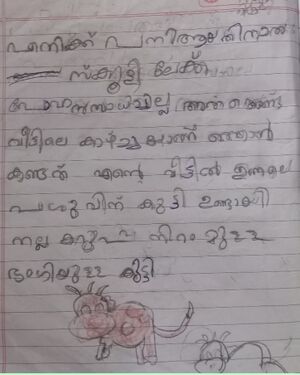 എനിക്ക് പനി ആയതിനാൽ
സ്കൂളി ലേക്ക്
പോകാൻ സാധിച്ചില്ല അത് കൊണ്ട്
വീട്ടിലെ കാഴ്ച്ച യാണ് ഞാൻ
കണ്ടത് എന്റെ വീട്ടിൽ ഇന്നലെ
പശു വിന് കുട്ടി ഉണ്ടായി
നല്ല കറുപ്പ് നിറം മുള്ള
ഭംഗിയുള്ള കുട്ടി